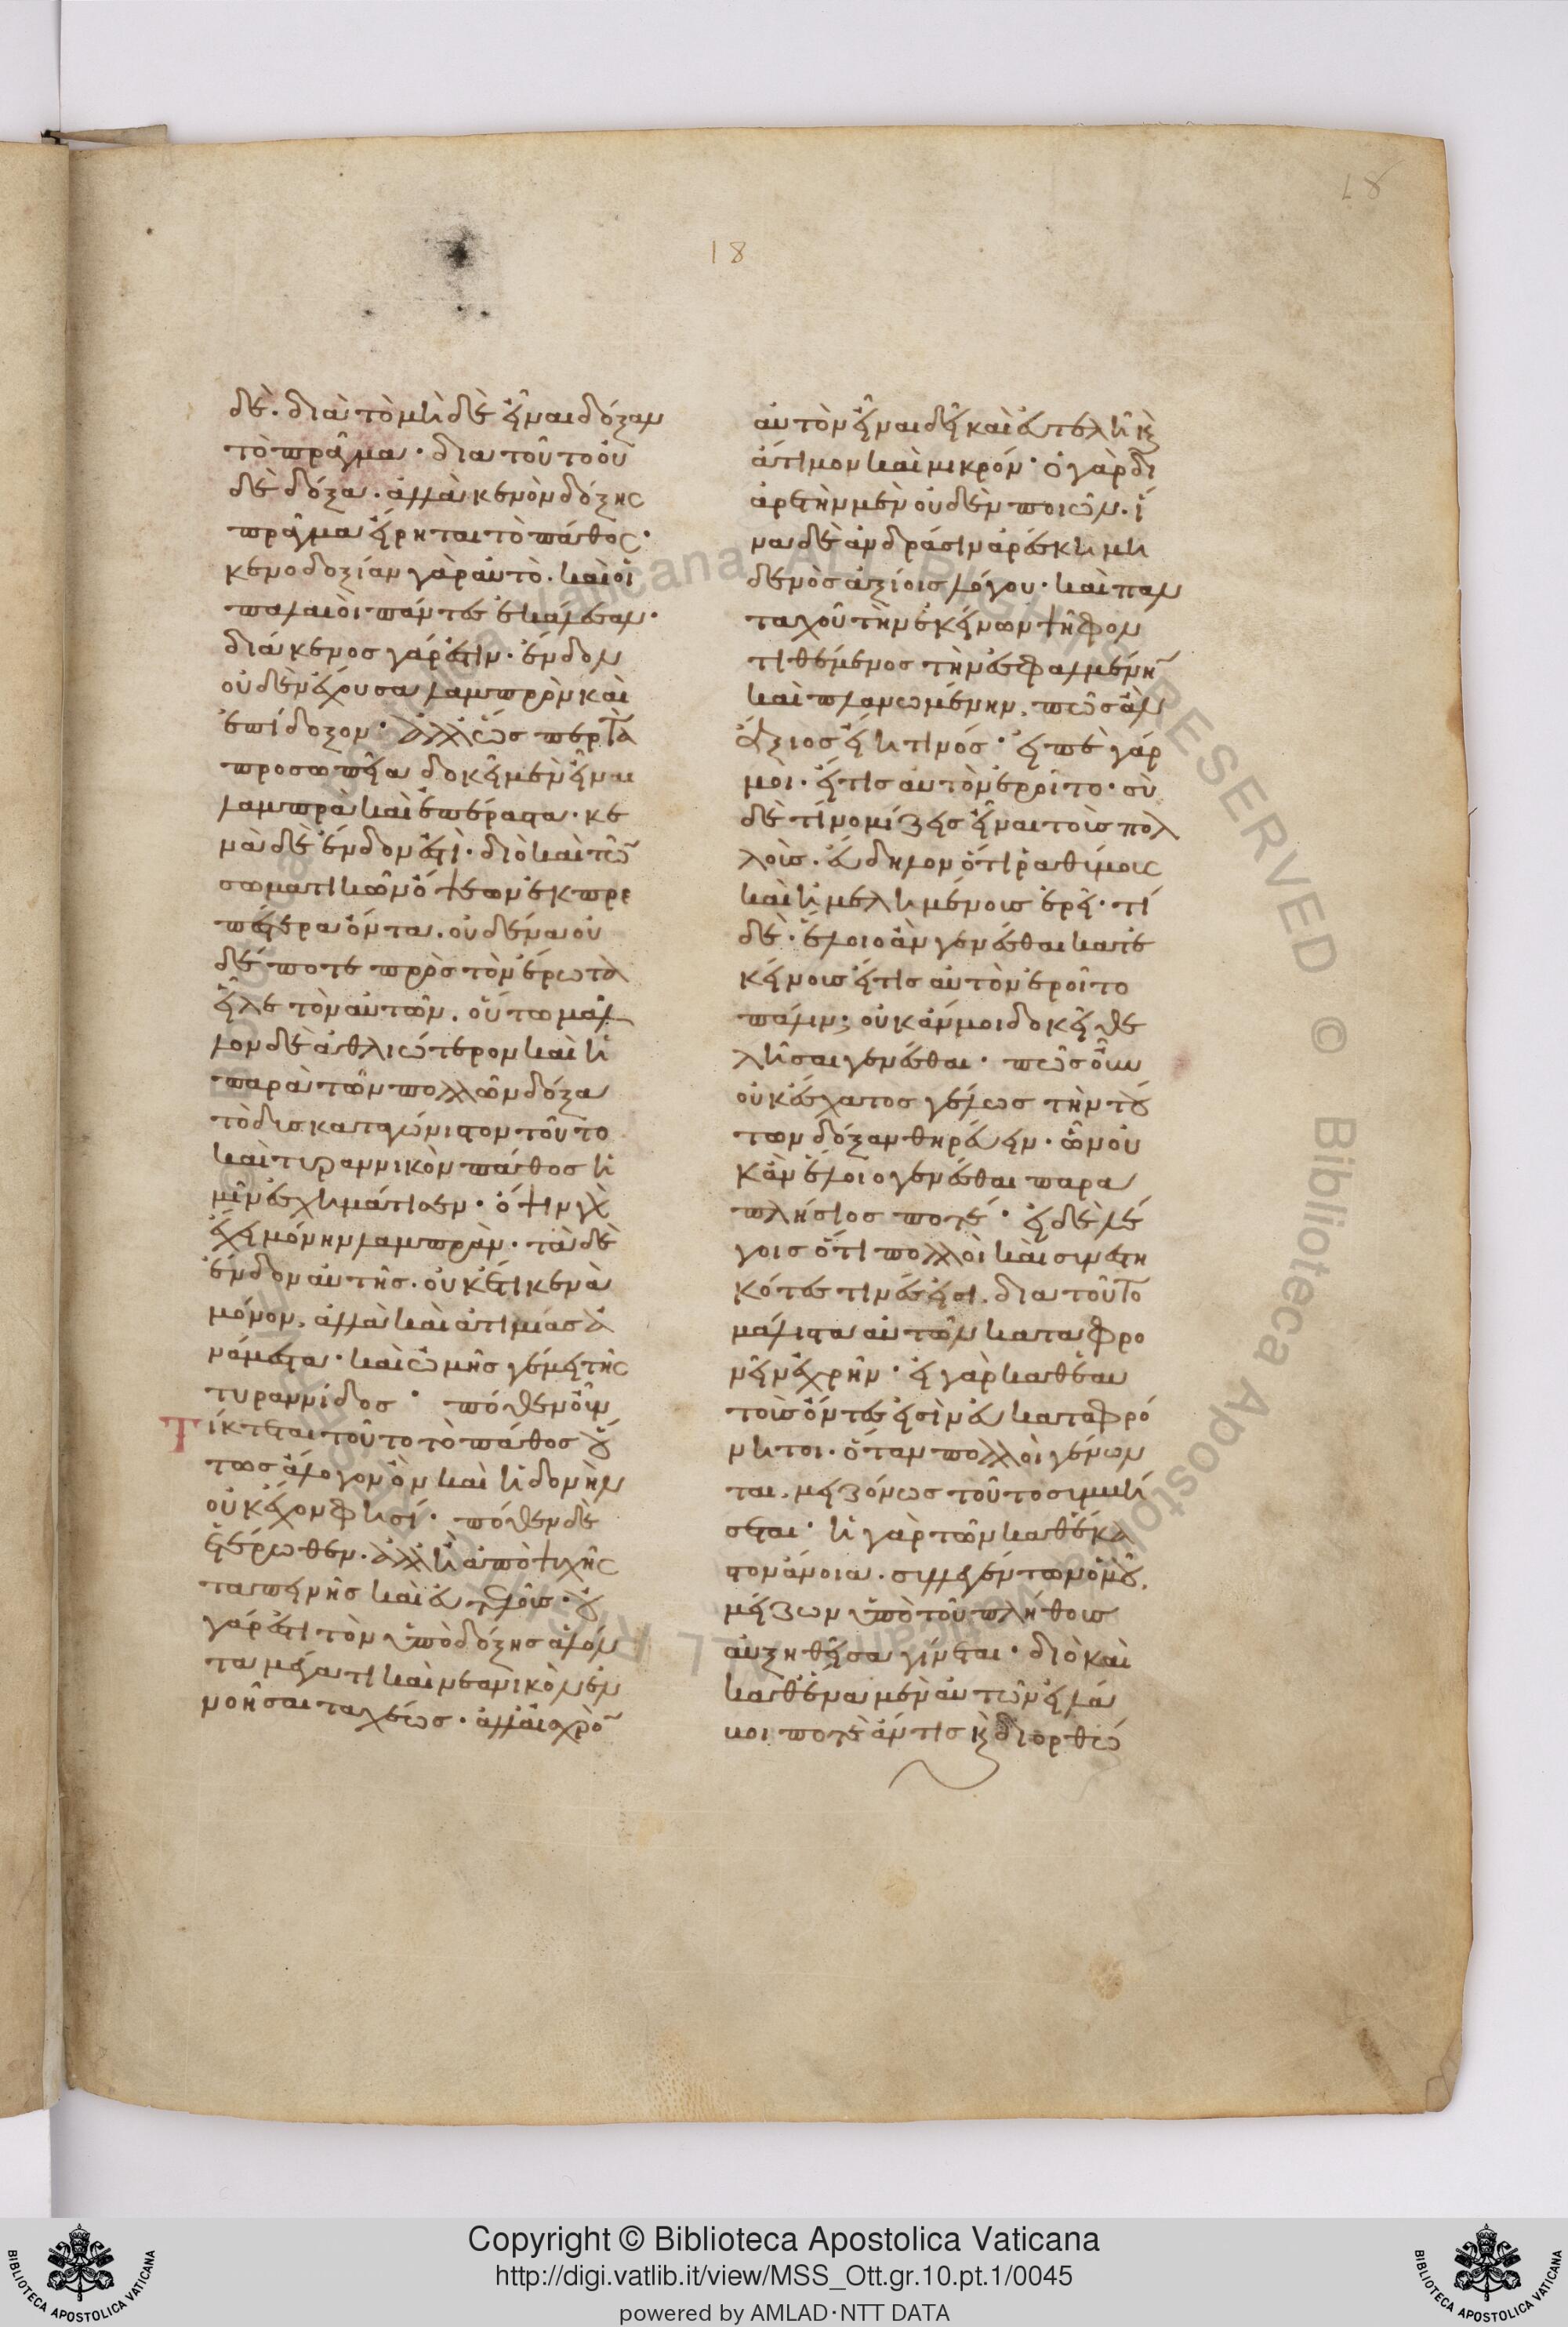 18
18
δὲ. διὰ τὸ μὴ δὲ εἶναι δόξαν
τὸ πρᾶγμα· δια τοῦτο οὐ
δὲ δόξα. ἀλλὰ κενὸν δόξης
πρᾶγμα εἴρηται τὸ πάθος·
κενοδοξίαν γὰρ αὐτὸ. καὶ οἱ
παλαιοὶ πάντες ἐκάλεσαν·
διάκενος γάρ ἐστιν. ἔνδον
οὐδὲν ἔχουσα λαμπρὸν καὶ
ἐπίδοξον· ἀλλ' ὡς περ τὰ
προσωπεῖα δοκεῖ μὲν εἶναι
λαμπρὰ καὶ ἐπέραστα. κε
νὰ δὲ ἔνδον ἐστὶ. διὸ καὶ τῶ
σωματικῶν ὄψεων ἐκπρε
πέστερα ὄντα. οὐδένα οὐ
δέποτε πρὸς τὸν ἔρωτα
εἷλε τὸν αὐτῶν. οὕτω μᾶλ
λον δὲ ἀθλιώτερον καὶ ἡ
παρὰ τῶν πολλῶν δόξα
τὸ δυσκαταγώνιστον τοῦτο
καὶ τυραννικὸν πάθος ἡ
μῖν ἐσχημάτισεν. ὄψιν γὰρ
ἔχει μόνην λαμπρὰν. τὰ δὲ
ἔνδον αὐτῆς. οὐκ ἔτι κενὰ
μόνον, ἀλλὰ καὶ ἀτιμίας ἀ
νάμεστα. καὶ ὠμῆς γέμει τῆς
τυραννίδος· πόθεν οὖν
Τίκτεται τοῦτο τὸ πάθος οὕ
τως ἄλογον ὂν καὶ ἡδονὴν
οὐκ ἔχον φησί· πόθεν δὲ
ἑτέρωθεν. ἀλλ' ἢ ἀπὸ ψυχῆς
ταπεινῆς καὶ εὐτελοῦς· οὐ
γάρ ἐστι τὸν ὑπὸ δόξης ἁλόν
τα μέγα τι καὶ νεανικὸν ἐν
νοῆσαι ταχέως. ἀλλ' αἰσχρὸ
αὐτὸν εἶναι δεῖ καὶ εὐτελῆ καὶ
ἄτιμον καὶ μικρόν· ὁ γὰρ δι
ἀρετὴν μὲν οὐδὲν ποιῶν. ἵ
να δὲ ἀνδράσιν ἀρέσκη μη
δενὸς ἀξίοις λόγου. καὶ παν
ταχοῦ τὴν ἐκείνων ψῆφον
τιθέμενος τὴν ἐσφαλμένη
καὶ πλανωμένην, πῶς ἂν
ἄξιος εἴη τινός· εἰπὲ γάρ
μοι. εἴ τις αὐτὸν ἔροιτο. σὺ
δὲ τί νομίζεις εἶναι τοὺς πολ
λοὺς. εὔδηλον ὅτι ῥαθύμους
καὶ ἠμελημένους ἐρεῖ. τί
δὲ. ἕλοιο ἂν γενέσθαι κατ' ἐ
κείνους εἴ τις αὐτὸν ἔροιτο
πάλιν; οὐκ ἄν μοι δοκεῖ θε
λῆσαι γενέσθαι. πῶς οὖν
οὐκ ἔσχατος γέλως τὴν τού
των δόξαν θηρεύειν. ὧν οὐ
κ ἂν ἕλοιο γενέσθαι παρα
πλήσιος ποτέ· εἰ δὲ λέ
γοις ὅτι πολλοὶ καὶ συνεστη
κότες τινές εἰσι. δια τοῦτο
μάλιστα αὐτῶν καταφρο
νεῖν ἐχρῆν· εἰ γὰρ καθ' ἕνα
τοὶ ὄντες εἰσὶν εὐκαταφρό
νητοι. ὅταν πολλοὶ γένων
ται. μειζόνως τοῦτο συμβή
σεται· ἡ γὰρ τῶν καθ' ἕκα
στον ἄνοια. συλλεγέντων ὁμοῦ,
μείζων ὑπὸ τοῦ πλήθους
αὐξηθεῖσα γίνεται· διὸ καὶ
καθ' ἕνα μὲν αὐτῶν εἰ λά
βοι ποτὲ ἄν τις καὶ διορθώ
Copyright © Biblioteca Apostolica Vaticana
http://digi.vatlib.it/view/MSS_Ott.gr.10.pt.1/0045
powered by AMLAD·NTT DATA
BIBLIOTECA APOSTOLICA VATICANA
BIBLIOTECA APOSTOLICA VATICANA